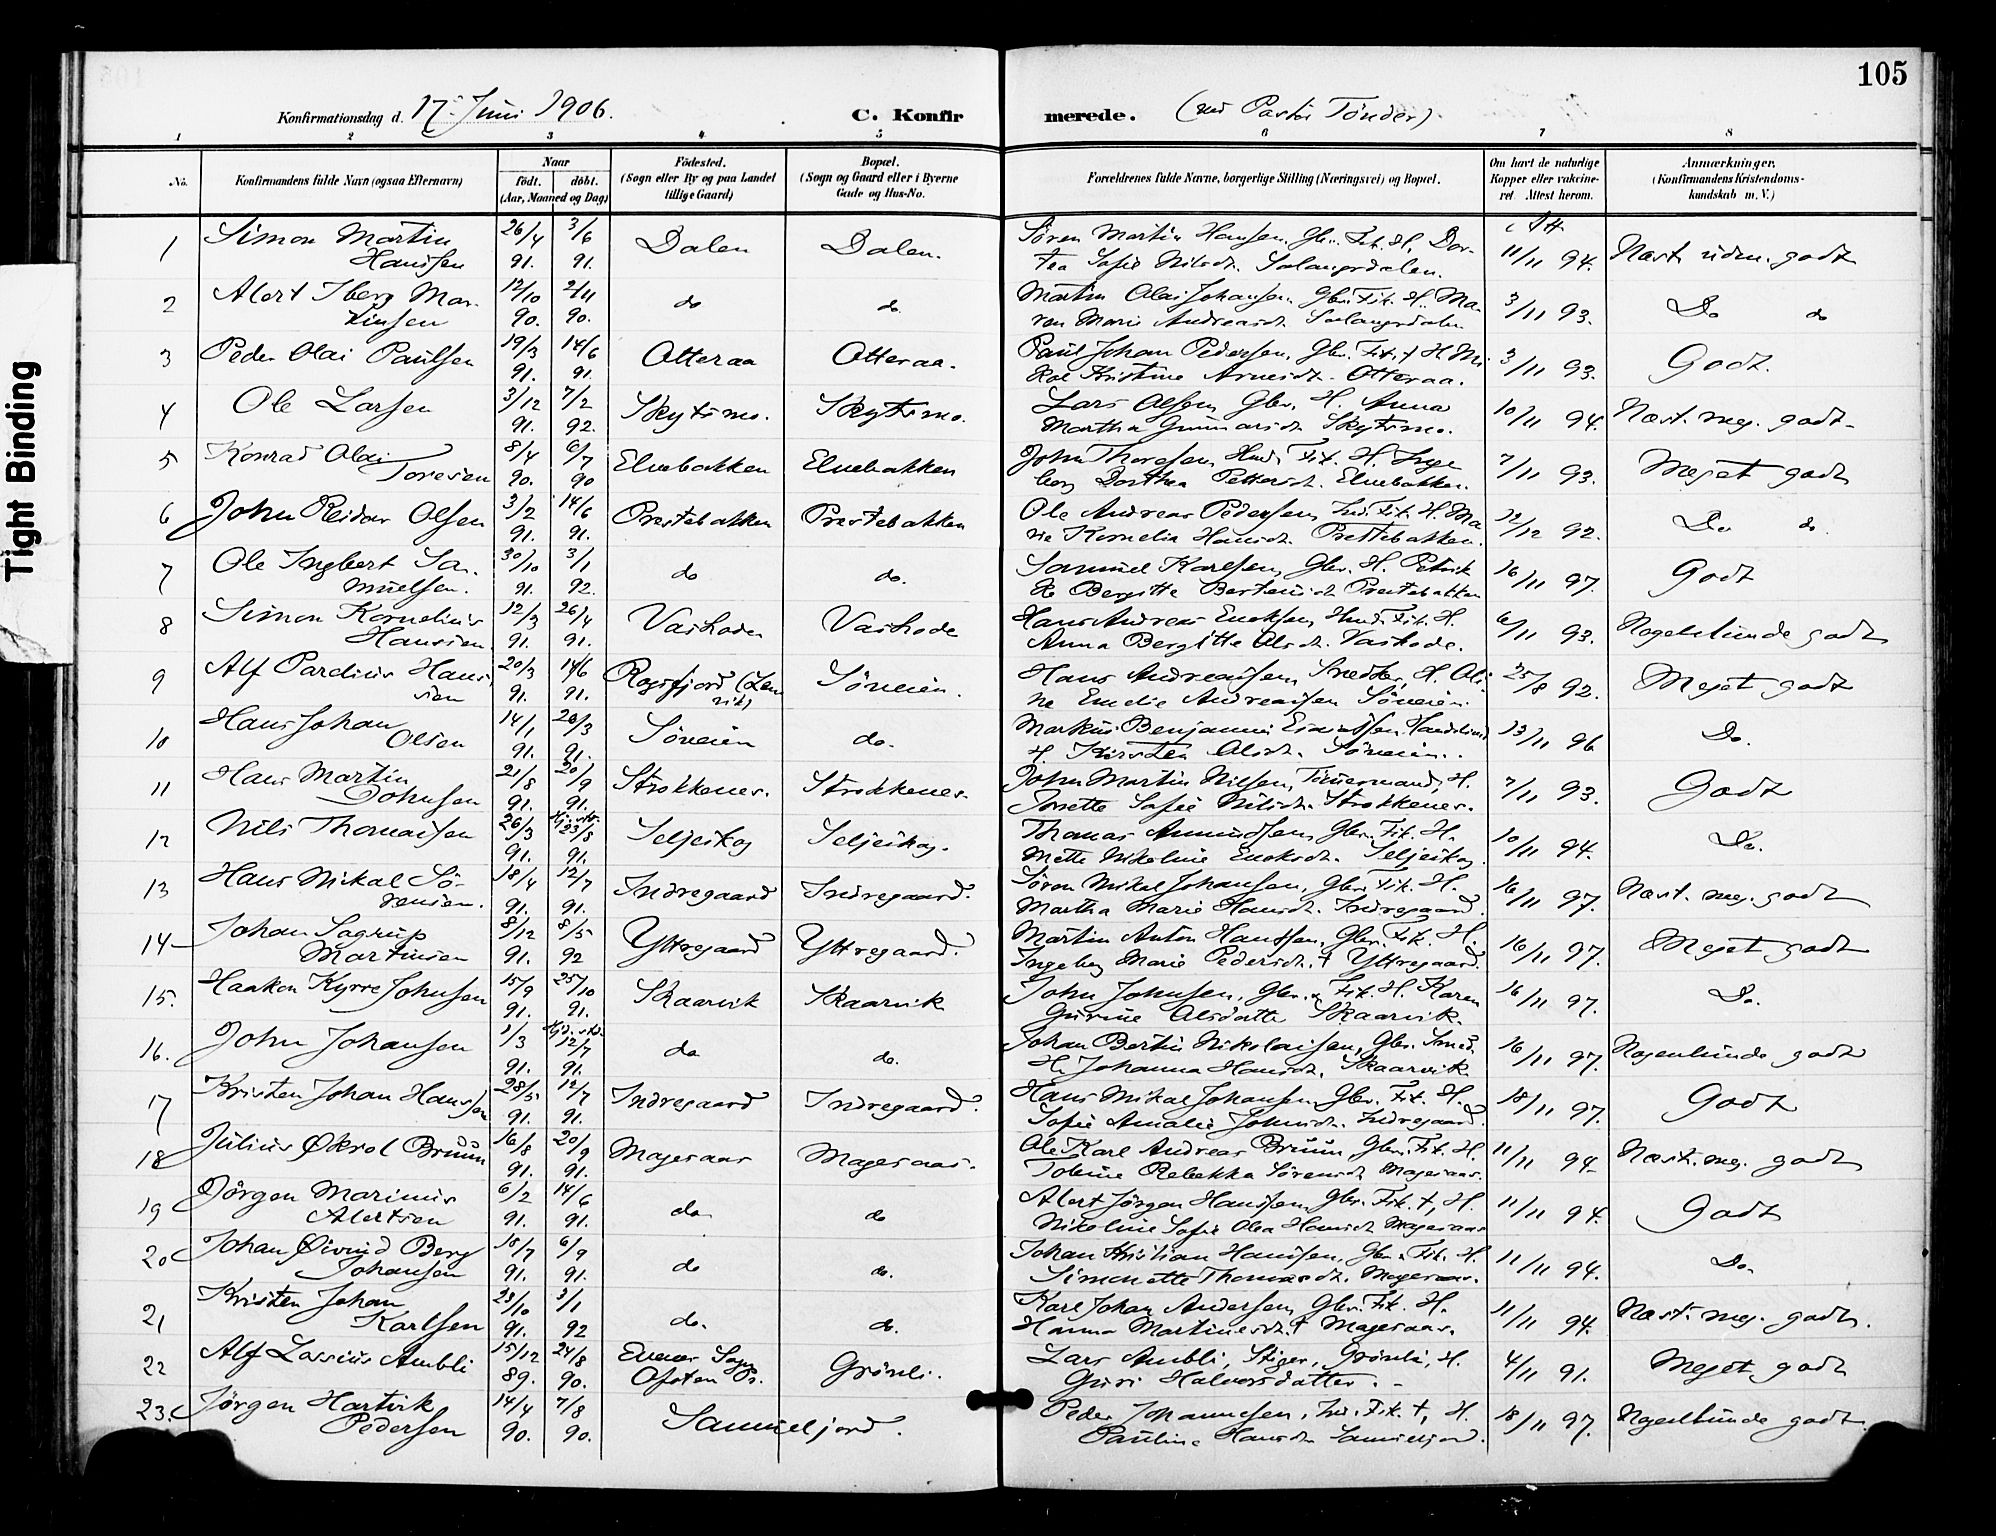 105
Konfirmationsdag d. 17. Juni 1906. C. Konfirmerede. (ved Pastor Tönder)
1 2 3 4 5 6 7 8
No. Konfirmandens fulde Navn (ogsaa Efternavn) Naar födt. döbt. (Aar, Maaned og Dag) Födested. (Sogn eller By og paa Landet tillige Gaard) Bopæl. (Sogn og Gaard eller i Byerne Gade og Hus-No. Forældrenes fulde Navne, borgerlige Stilling (Næringsvei) og Bopæl. Om havt de naturlige Kopper eller vakcineret. Attest herom. Anmærkninger. (Konfirmandens Kristendomskundskab m. V.)
1 Simon Martin Hansen 26/4 91. 3/6 91. Dalen Dalen. Sören Martin Hansen, Gbr. Fik. H. Dortea Sofie Nilsdt. Salangsdalen. 11/11 94. Næst uden. godt
2 Alert Iberg Martinsen 12/10 90. 2/11 90. do do. Martin Olai Johansen, Gbr. Fik. H. Maren Marie Andreasdt. Salangsdalen 3/11 93. Do do
3 Peder Olai Paulsen 19/3 91. 14/6 91. Otteraa Otteraa. Paul Johan Pedersen, Gbr. Fik. † H. Mikal Kristine Arnesdt. Otteraa. 3/11 93. Godt.
4 Ole Larsen 3/12 91. 7/2 92. Skytsmo. Skytsmo. Lars Olsen, Gbr. H. Anna Martha Gunnarsdt. Skytsmo. 10/11 94. Næst. meg. godt
5 Konrad Olai Toresen 8/4 90. 6/7 90 Elvebakken Elvebakken John Thoresen, Hmd. Fik. H. Ingeborg Dorthea Pettersdt. Elvebakken. 7/11 93. Meget godt
6 John Reidar Olsen 3/2 91. 14/6 91. Prestebakken Prestebakken Ole Andreas Pedersen, Ind. Fik. H. Marie Kornelia Hansdt. Prestebakken. 12/12 92. Do do.
7 Ole Ingbert Samuelsen. 30/10 91. 3/1 92. do do. Samuel Karlsen, Gbr. H. Petrikke Bergitte Berteusdt. Prestebakken 16/11 97. Godt
8 Simon Kornelius Hansen. 12/3 91. 26/4 91. Vashoden Vashode Hans Andreas Enoksen, Hmd. Fik. H. Anna Bergitte Olsdt. Vashode. 6/11 93. Nogenlunde godt
9 Alf Parelius Hansen 20/3 91. 14/6 91. Rossfjord (Lenvik) Söveien. Hans Andreassen, Smed, H. Oline Emelie Andreassen Söveien. 25/8 92. Meget godt
10 Hans Johan Olsen 14/1 91. 26/3 91. Söveien do. Markus Benjamin Eriassen, Handelsmd H. Kirsten Olsdt. Söveien. 13/11 96 Do.
11 Hans Martin Johnsen 21/8 91. 20/9 91. Strokkenes. Strokkenes. John Martin Nilsen, Tömmermand, H. Josette Sofie Nilsdt. Strokkenes. 7/11 93. Godt
12 Nils Thomassen 26/3 91. 23/8 91. Seljeskog Seljeskog. Thomas Amundsen, Gbr. Fik. H. Mette Nikoline Enoksdt. Seljeskog. 10/11 94. Do.
13 Hans Mikal Sörensen. 18/4 91. 12/7 91. Indregaard Indregaard. Sören Mikal Johansen, Gbr. Fik. H. Martha Marie Hansdt. Indregaard. 16/11 97. Næst. meg. godt
14 Johan Sagrup Martinsen 8/12 91. 8/5 92 Yttregaard Yttregaard. Martin Anton Hanssen, Gbr. Fik. H. Ingeborg Marie Pedersdt. † Yttregaard. 16/11 97. Meget godt
15. Haakon Kyrre Johnsen 15/9 91. 25/10 91. Skaarvik Skaarvik John Johnsen, Gbr. Fik. H. Karen Gurine Olsdatter Skaarvik. 16/11 97. Do.
16. John Johansen 1/3 91. 12/7 91. do do. Johan Bertin Nikolaisen, Gbr. Smed. H. Johanna Hansdt. Skaarvik 16/11 97. Nogenlunde godt
17 Kristen Johan Hansen 28/5 91. 12/7 91. Indregaard Indregaard. Hans Mikal Johansen, Gbr. Fik. H. Sofie Amalie Johnsdt. Indregaard. 18/11 97. Godt
18 Julius Økrol Bruun 16/8 91. 20/9 91. Magesaas Magesaas. Ole Karl Andreas Bruun Gbr. Fik. H. Toline Rebekka Sörensdt. Magesaas. 11/11 94 Næst. meg. godt
19 Jörgen Marinus Alertsen 6/2 91. 14/6 91. do do Alert Jörgen Hanssen, Gbr. Fik. †, H. Nikoline Sofie Olea Hansdt. Magesaas 11/11 94. Godt
20 Johan Øivind Berg Johansen 18/7 91. 6/9 91. do do. Johan Kristian Hanssen, Gbr. Fik. H. Simonette Thomasdt. Magesaas. 11/11 94. Do.
21 Kristen Johan Karlsen 23/10 91. 3/1 92 do. do. Karl Johan Andersen, Gbr. Fik. H. Hanna Martinesdt. † Magesaas. 11/11 94. Næst. meg. godt.
22 Alf Lassius Ambli 15/12 89. 24/8 90. Evenes Sogn Ofoten Pr. Grönli. Lars Ambli, Stiger, Grönli, H. Guri Halvorsdatter. 4/11 91. Meget godt
23. Jörgen Hartvik Pedersen 14/4 90. 7/8 90. Samuelfjord. Peder Johannesen, Ind. Fik. †, H. Pauline Hansdt. Samuelfjord. 18/11 97. Nogenlunde godt.
Tight Binding